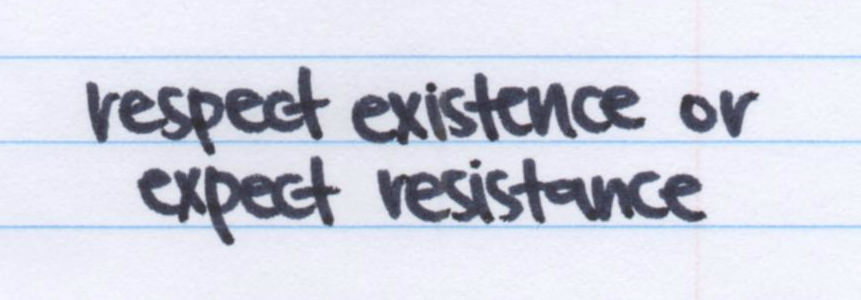 respect existence or
expect resistance